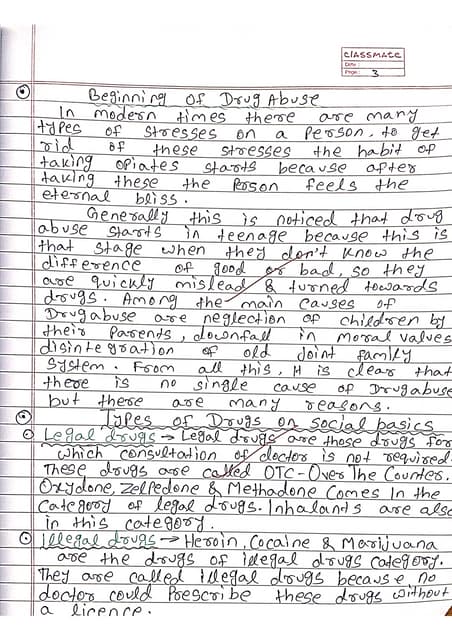 CLASSMATE
Date :
Page : 3
Beginning Of Drug Abuse
In modern times there are many
types of stresses on a person. to get
rid of these stresses the habit of
taking opiates starts because after
taking these the person feels the
eternal bliss.
Generally this is noticed that drug
abuse starts in teenage because this is
that stage when they don't know the
difference of good or bad, so they
are quickly mislead & turned towards
drugs. Among the main causes of
Drugabuse are neglection of children by
their Parents, downfall in moral values
disintegration of old joint family
System. From all this, it is clear that
there is no single cause of Drugabuse
but there are many reasons.
Types of Drugs on social basics
Legal drugs → Legal drugs are those drugs for
which consultation of doctor is not required.
These drugs are called OTC-Over The Counter.
Oxydone, Zelpedone & Methadone Comes In the
Category of legal drugs. Inhalants are also
in this category.
Illegal drugs → Heroin, Cocaine & Marijuana
are the drugs of illegal drugs category.
They are called illegal drugs because no
doctor could Prescribe these drugs without
a licence.